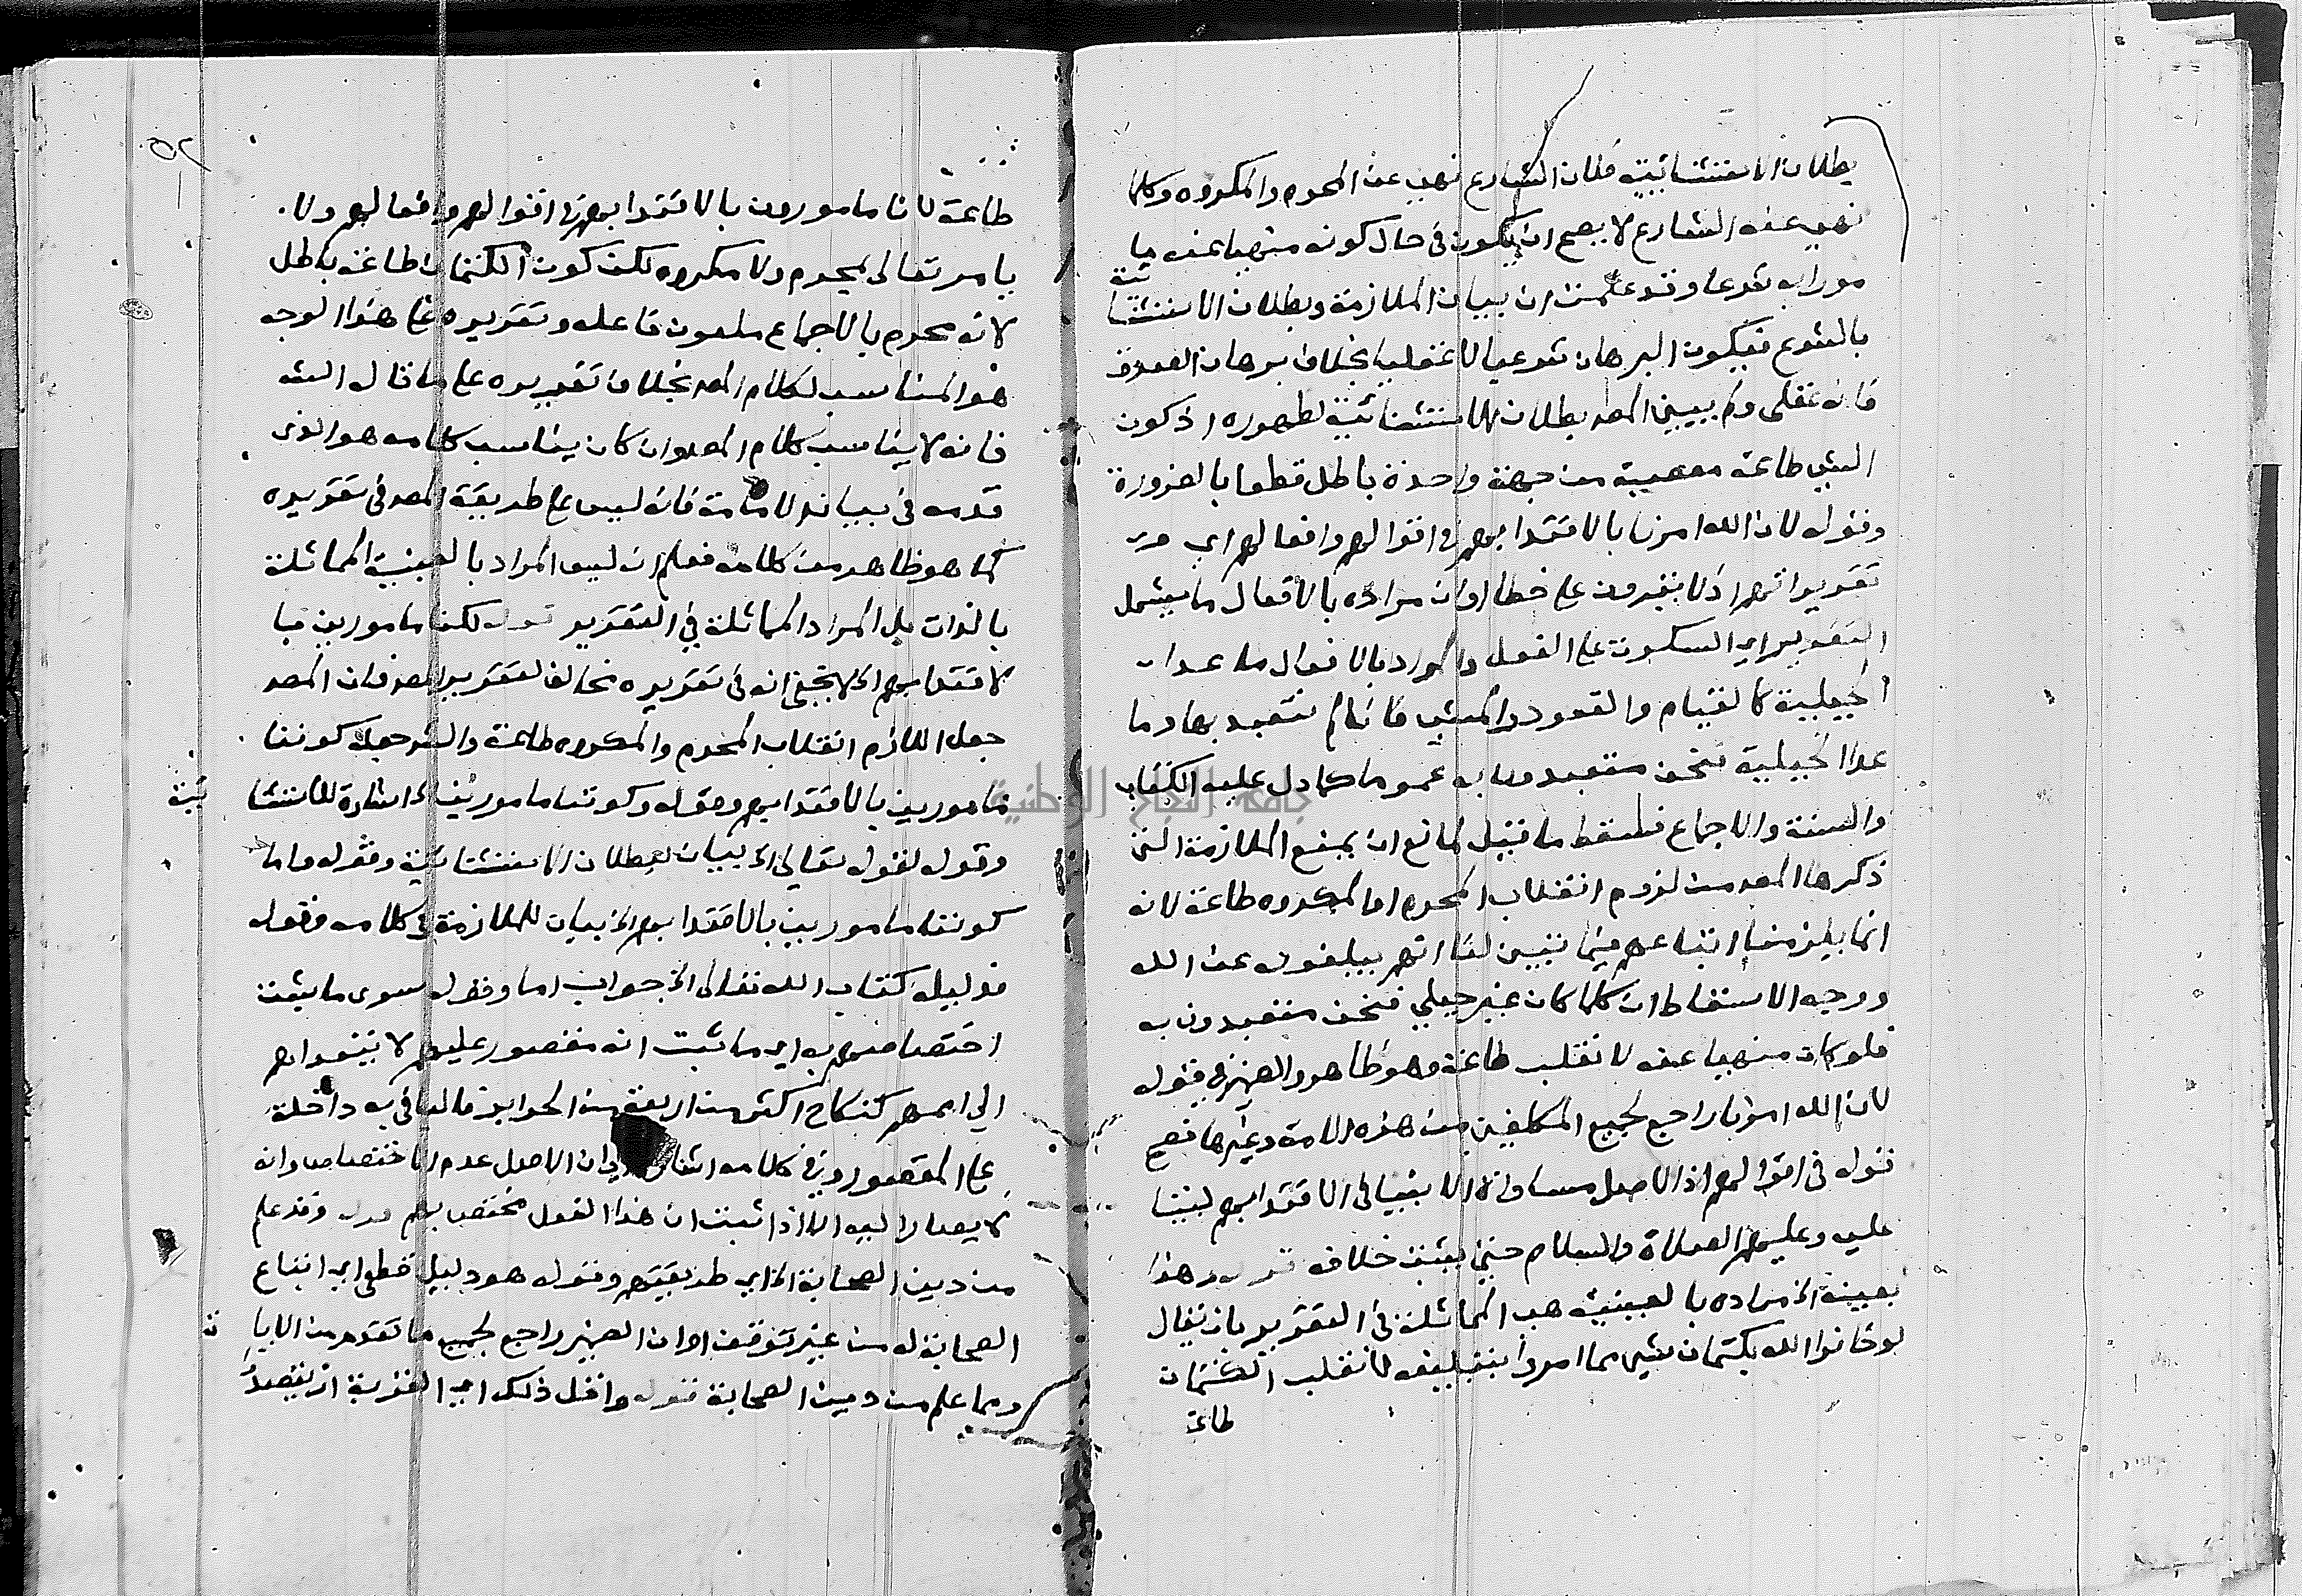 بطلان الاستثنائية فلان الشارع نهى عن المحرم والمكروه وكلما
نهى عنه الشارع لا يصح ان يكون في حال كونه منهيا عنه ما
مورا به شرعا وقد علمت ان بيان الملازمة وبطلان الاستثنائية
بالشرع فيكون البرهان شرعيا لا عقليا بخلاف برهان الصدق
فانه عقلى ولم يبين المصـ بطلان الاستثنائية لظهوره اذ كون
الشي طاعة معصية من جهة واحدة باطل قطعا بالضرورة
وقوله لان الله امرنا بالاقتدا بهم في اقوالهم وافعالهم اي
تقريراتهم اذ لا يقرون على خطا او ان مراده بالافعال ما يشمل
التقرير اي السكوت على الفعل والمراد بالافعال ما عدا
الجبلية كالقيام والقعود والمشي فانا لم نتعبد بها وما
عدا الجبلية فنحن متعبدون به عموما كما دل عليه الكتاب
والسنة والاجماع فسقط ما قيل لمانع ان يمنع الملازمة التي
ذكرها المصـ من لزوم انقلاب المحرم او المكروه طاعة لانه
انما يلزمنا اتباعهم فيما تبين لنا انهم يبلغونه عن الله
ووجه الاسقاط ان كلما كان غير جبلي فنحن متعبدون به
فلو كان منهيا عنه لانقلب طاعة وهو ظاهر والضمير في قوله
لان الله امرنا راجع لجميع المكلفين من هذه الامة وغيرها فصح
قوله في اقوالهم اذ الاصل مساواة الانبيا في الاقتدا بهم لنبينا
عليه وعليهم الصلاة والسلام حتى يثبت خلافه قوله وهذا
بعينه الخ مراده بالعينية هنا المماثلة في التقرير بان تقال
لو خانوا الله بكتمان شي مما امروا بتبليغه لانقلب الكتمان
طاعة
طاعة لانا مامورون بالاقتدا بهم في اقوالهم وافعالهم ولا
يامر تعالى بمحرم ولا مكروه لكن كون الكتمان طاعة باطل
لانه محرم بالاجماع ملعون فاعله وتقريره على هذا الوجه
هو المناسب لكلام المصـ بخلاف تقريره على ما قال الشـ
فانه لا يناسب كلام المصـ وان كان يناسب كلامه هو الذي
قدمه في بيان الامانة فانه ليس على طريقة المصـ في تقريره
كما هو ظاهر من كلامه فعلم ان ليس المراد بالعينية المماثلة
بالذات بل المراد المماثلة في التقرير قوله لكنا مامورين با
لاقتدا بهم الخ لا يخفى انه في تقريره مخالف لتقرير المصـ فان المصـ
جعل اللازم انقلاب المحرم والمكروه طاعة والشـ جعله كوننا
مامورين بالاقتدا بهم وقوله وكوننا مامورين الخ اشارة للاستثنائية
وقوله لقوله تعالى الخ بيان لبطلان الاستثنائية وقوله واما
كوننا مامورين بالاقتدا بهم الخ بيان للملازمة في كلامه وقوله
فدليله كتاب الله تعالى الخ جواب اما وقوله سوى ما يثبت
اختصاصهم به اي ما ثبت انه مقصور عليهم لا يتعداهم
الى اممهم كنكاح اكثر من اربعة من الحراير فالبا في به داخلة
على المقصور وفي كلامه اشارة الى ان الاصل عدم الاختصاص وانه
لا يصار اليه الا اذا ثبت ان هذا الفعل مختص بهم قوله وقد علم
من دين الصحابة الخ اي طريقتهم وقوله هو دليل قطعي اي اتباع
الصحابة له من غير توقف او ان الضمير راجع لجميع ما تقدم من الايات
ومما علم من دين الصحابة قوله واقل ذلك اي القربة ان يقصد
جامعة النجاح الوطنية